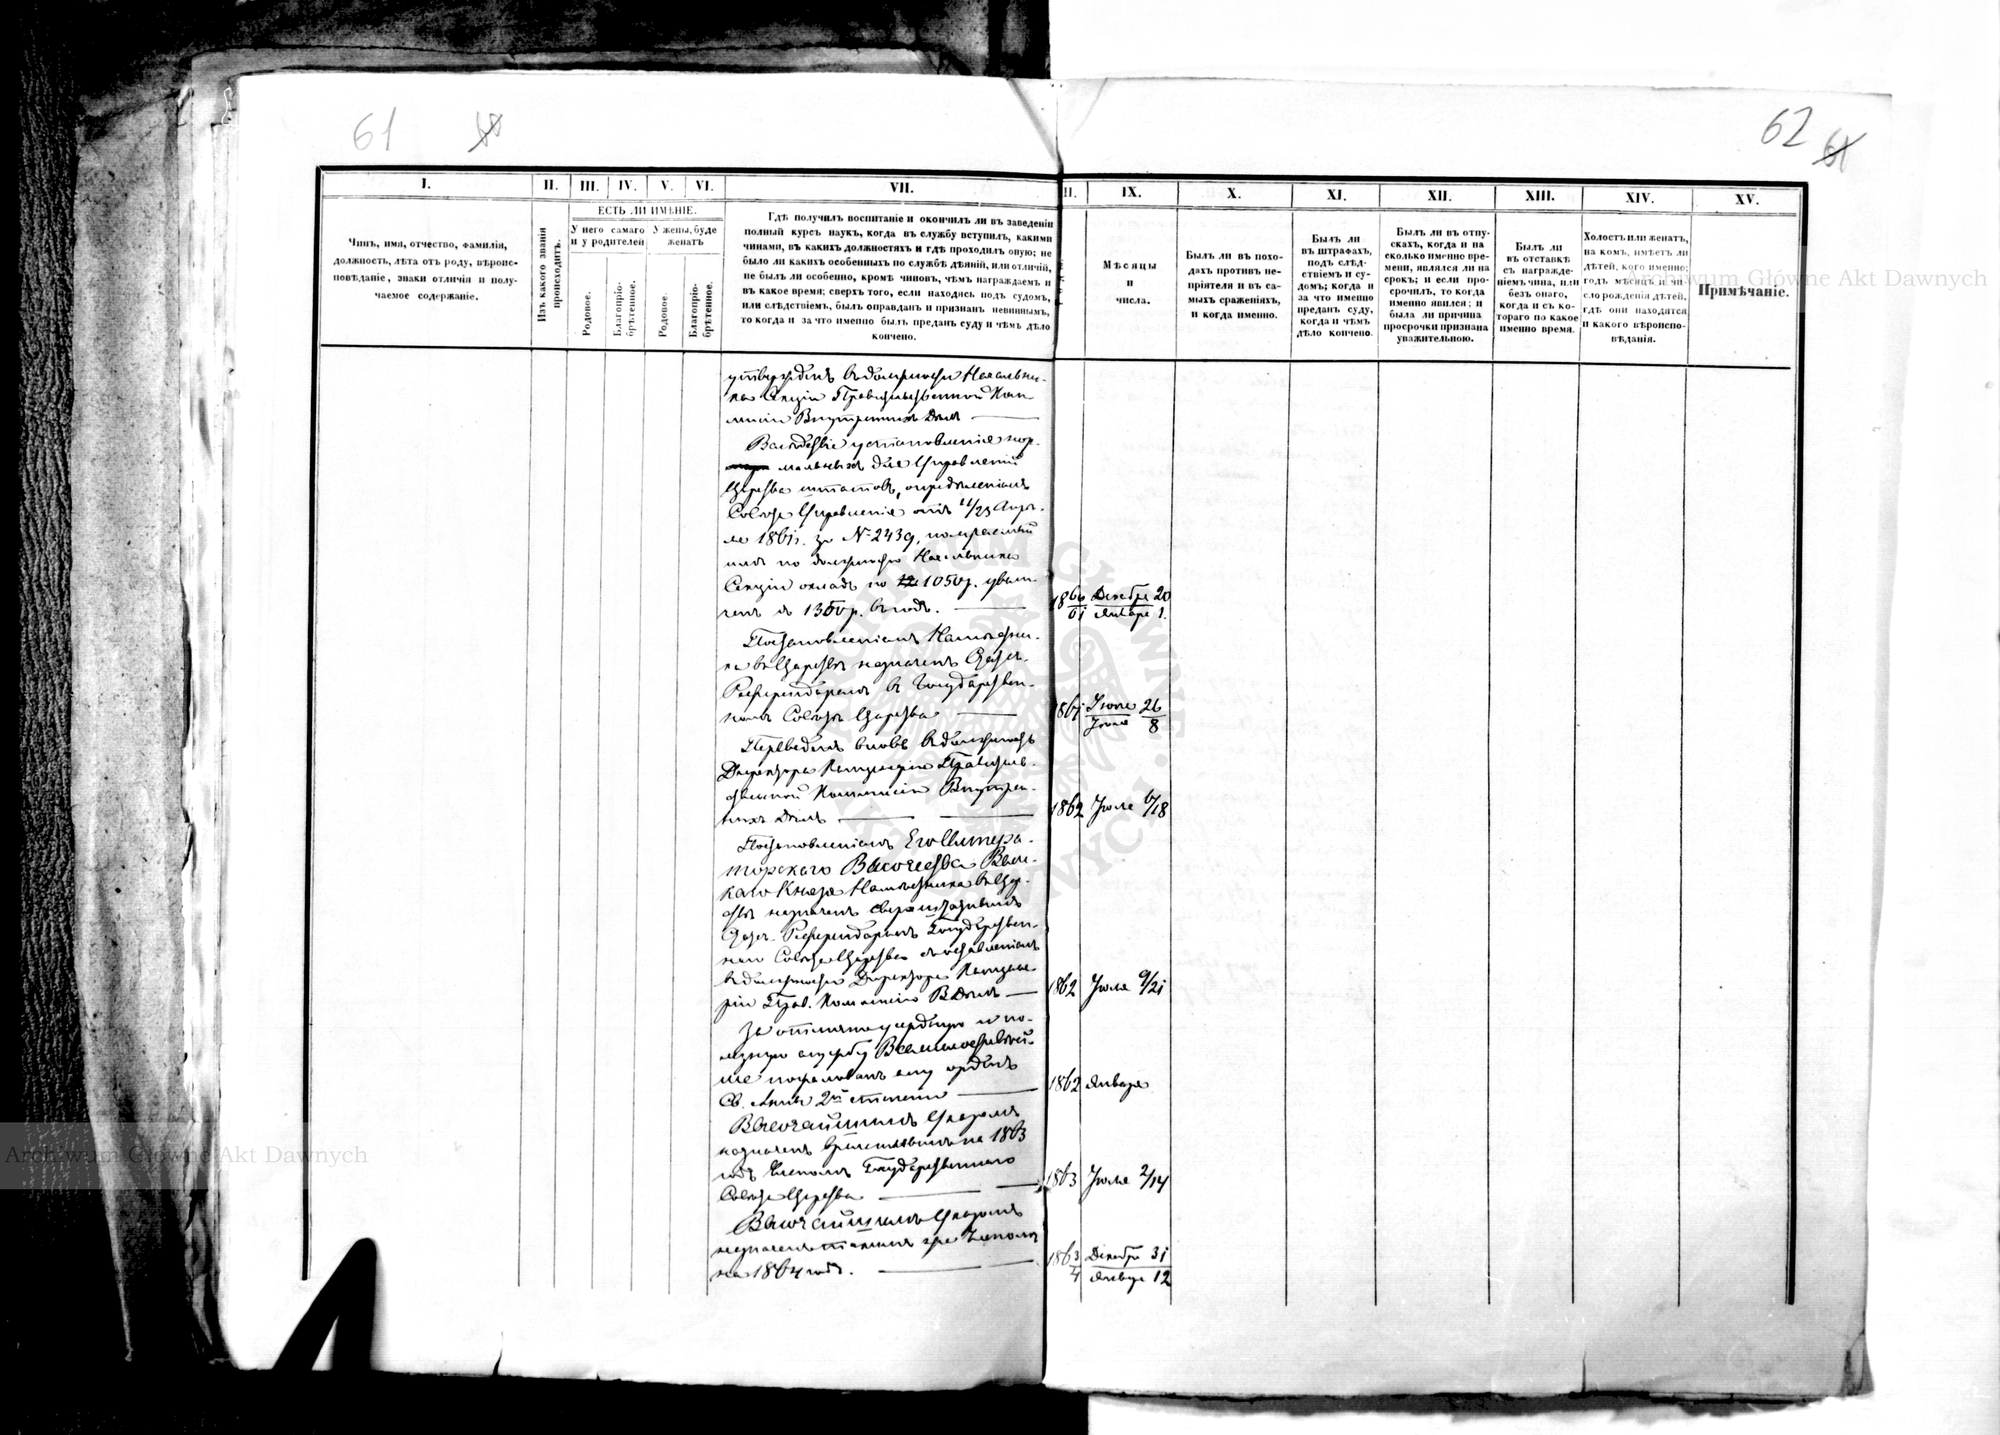 61
62
I.
II.
III.
IV.
V.
VI.
VII.
II.
IX.
X.
XI.
XII.
XIII.
XIV.
XV.
Чинъ, имя, отчество, фамилія,
должность, лѣта отъ роду, вѣроис-
повѣданіе, знаки отличія и полу-
чаемое содержаніе.
Изъ какого званія
происходитъ.
ЕСТЬ ЛИ ИМѢНІЕ.
У него самаго
и у родителей
У жены, буде
женатъ
Родовое.
Благопріо-
брѣтенное.
Родовое.
Благопріо-
брѣтенное.
Гдѣ получилъ воспитаніе и окончилъ ли въ заведеніи
полный курсъ наукъ, когда въ службу вступилъ, какими
чинами, въ какихъ должностяхъ и гдѣ проходилъ оную; не
было ли какихъ особенныхъ по службѣ дѣяній, или отличій,
не былъ ли особенно, кромѣ чиновъ, чѣмъ награждаемъ и
въ какое время; сверхъ того, если находясь подъ судомъ,
или слѣдствіемъ, былъ оправданъ и признанъ невиннымъ,
то когда и за что именно былъ преданъ суду и чѣмъ дѣло
кончено.
Мѣсяцы
и
числа.
Былъ ли въ похо-
дахъ противъ не-
пріятеля и въ са-
мыхъ сраженіяхъ,
и когда именно.
Былъ ли
въ штрафахъ,
подъ слѣд-
ствіемъ и су-
домъ; когда и
за что именно
преданъ суду,
когда и чѣмъ
дѣло кончено.
Былъ ли въ отпу-
скахъ, когда и на
сколько именно вре-
мени, являлся ли на
срокъ; и если про-
срочилъ, то когда
именно явился; и
была ли причина
просрочки признана
уважительною.
Былъ ли
въ отставкѣ
съ награжде-
ніемъ чина, или
безъ онаго,
когда и съ ко-
тораго по какое
именно время.
Холостъ или женатъ,
на комъ, имѣетъ ли
дѣтей, кого именно;
годъ мѣсяцъ и чи-
сло рожденія дѣтей,
гдѣ они находятся
и какого вѣроиспо-
вѣданія.
Примѣчаніе.
утвержденъ въ должности Начальни-
ка Секціи Правительственной Ком-
мисіи Внутреннихъ Дѣлъ
Вслѣдствіе установленія нор-
мальныхъ для Управленій
Царства штатовъ, опредѣленіемъ
Совѣта Управленія отъ 11/23 Апрѣ-
ля 1861 г. за № 2439, получаемый
имъ по должности Начальника
Секціи окладъ по 1050 р. увели-
ченъ до 1350 р. въ годъ.
1860/61 Декабря 20
Января 1.
Постановленіемъ Намѣстни-
ка въ Царствѣ назначенъ
Референдаремъ въ Государствен-
номъ Совѣтѣ Царства
1861 Іюня 26
Іюля 8
Переведенъ вновь въ должность
Директора Канцеляріи Правитель-
ственной Коммисіи Внутрен-
нихъ Дѣлъ
1862 Іюля 6/18
Постановленіемъ Его Импера-
торскаго Высочества Вели-
каго Князя Намѣстника въ Цар-
ствѣ назначенъ сверхштатнымъ
Референдаремъ Государствен-
наго Совѣта Царства съ оставленіемъ
въ должности Директора Канцеля-
ріи Прав. Коммисіи В. Дѣлъ
1862 Іюля 9/21
За отлично усердную и по-
лезную службу Всемилостивѣй-
ше пожалованъ ему орденъ
Св. Анны 2й степени
1862 Января
Высочайшимъ Указомъ
назначенъ временнымъ на 1863
годъ Членомъ Государственнаго
Совѣта Царства
1863 Іюля 2/14
Высочайшимъ Указомъ
назначенъ таковымъ же Членомъ
на 1864 годъ.
1863/4 Декабря 31
Января 12
Archiwum Główne Akt Dawnych
Archiwum Główne Akt Dawnych